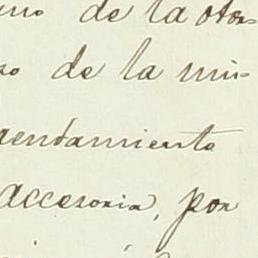 de la otor-
de la mis-
rendamiento
accesoria, por